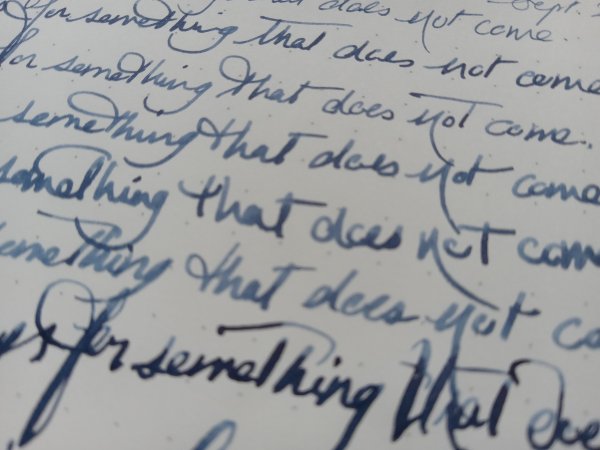 that does not come. Sept.
for something that does not come
for something that does not come.
something that does not come
something that does not come
something that does not co
for something that doe